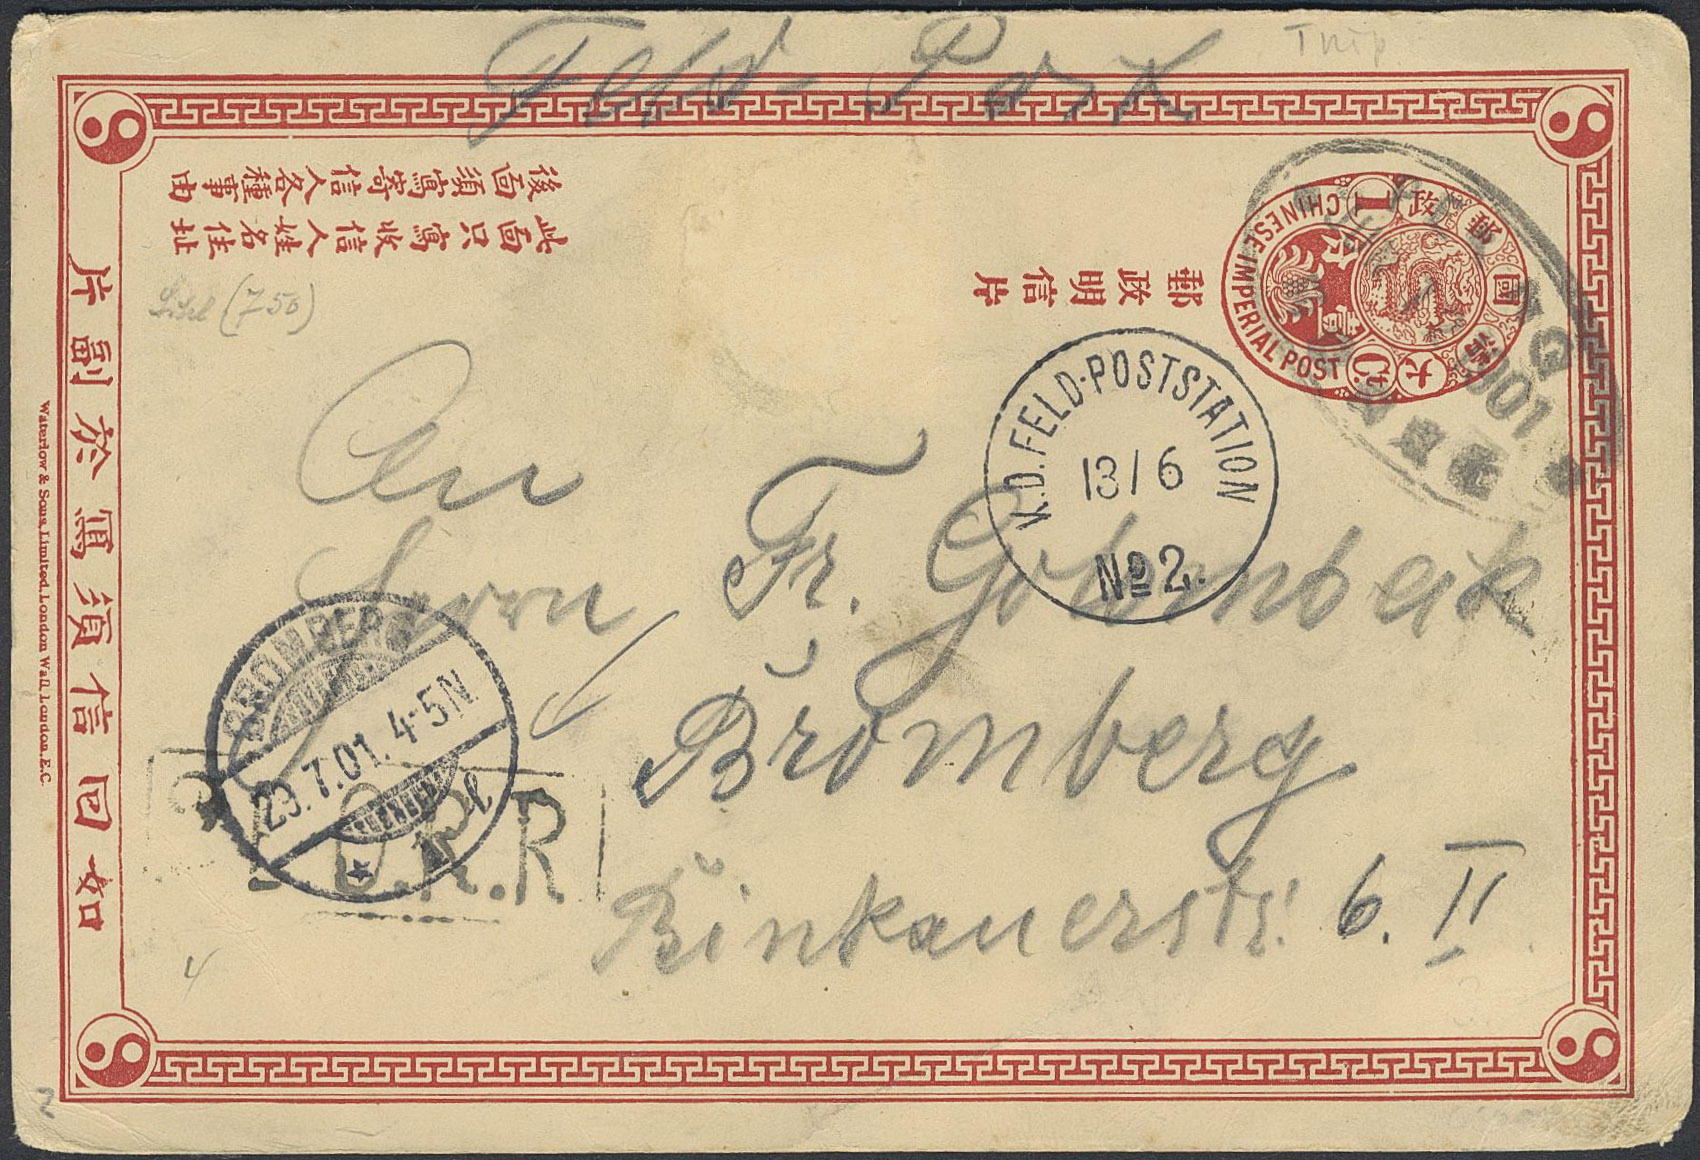 Feld-Post
CHINESE IMPERIAL POST
大清國郵政
1 C.
郵政明信片
此面只寫收信人姓名住址
後面須寫寄信人各種事由
如回信須寫於副片
Waterlow & Sons Limited, London Wall, London, E.C.
(750)
K.D. FELD-POSTSTATION
13/6
No 2.
1901
An
Herrn Fr.
Bromberg
Rinkauerstr. 6. II
BROMBERG
29.7.01. 4-5N